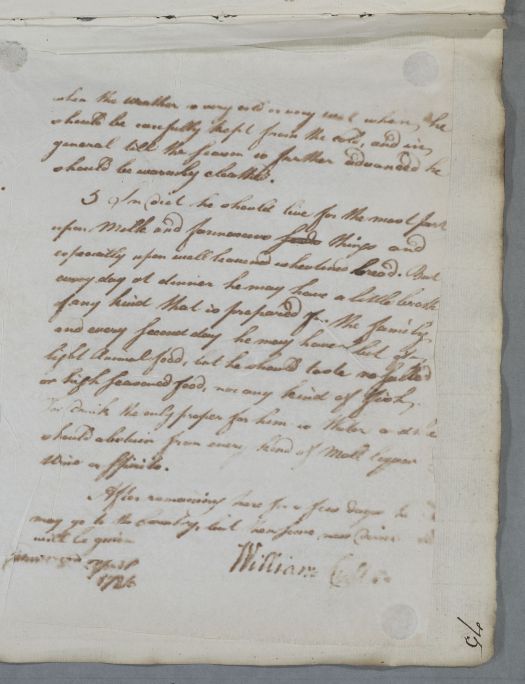 when the weather is very cold or very wet when he
should be carefully kept from the cold, and in
general till the season is further advanced he
should be warmly cloathed.
5 In diet he should live for the most part
upon Milk and farinaceous things and
especially upon well leavened wheaten bread. But
every day at dinner he may have a little broth
of any kind that is prepared for the family
and every second day he may have a bit of
light Animal food, but he should taste no salted
or high seasoned food, nor any kind of fish.
For drink the only proper for him is Water and he
should abstain from every kind of Malt liquor
Wine or Spirits.
After remaining here for a few days he
may go to the Country, but some new advice
will be given
William Cullen
April